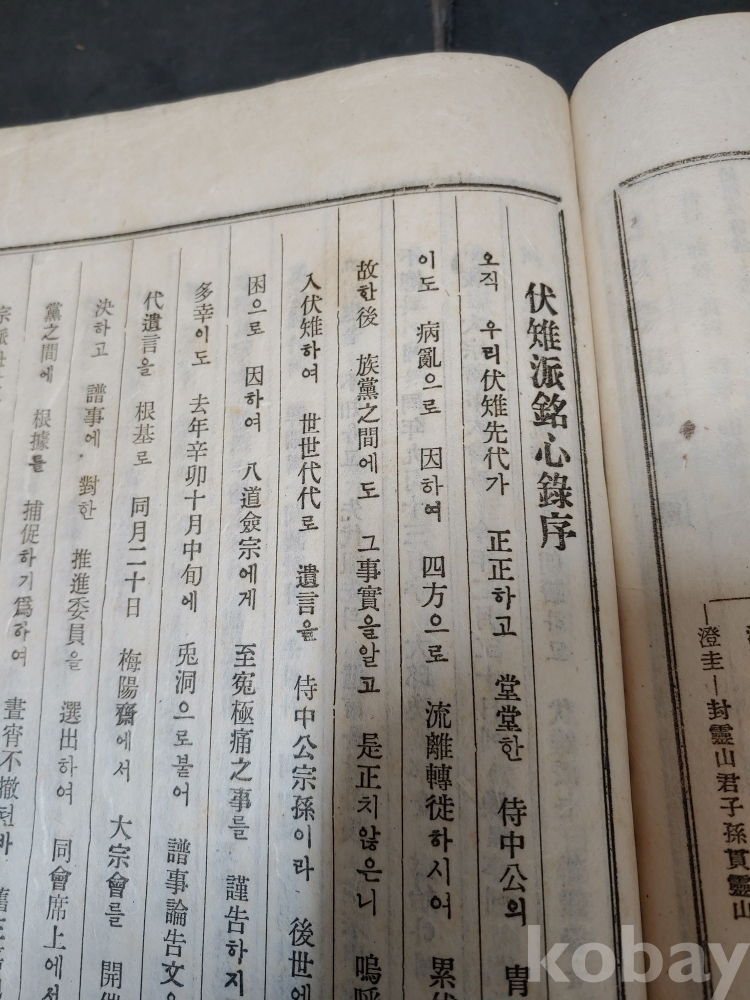 澄圭ー封靈山君子孫貫靈山
伏雉派銘心錄序
오직 우리伏雉先代가 正正하고 堂堂한 侍中公의 胄
이도 病亂으로 因하여 四方으로 流離轉徙하시여 累代
故한後 族黨之間에도 그事實을알고 是正치않은니 嗚呼
入伏雉하여 世世代代로 遺言을 侍中公宗孫이라 後世에
困으로 因하여 八道僉宗에게 至寃極痛之事를 謹告하지
多幸이도 去年辛卯十月中旬에 兎洞으로붙어 譜事論告文을
代遺言을 根基로 同月二十日 梅陽齋에서 大宗會를 開催
決하고 譜事에 對한 推進委員을 選出하여 同會席上에서
黨之間에 根據를 捕促하기爲하여 晝宵不撤턴바
宗派
kobay